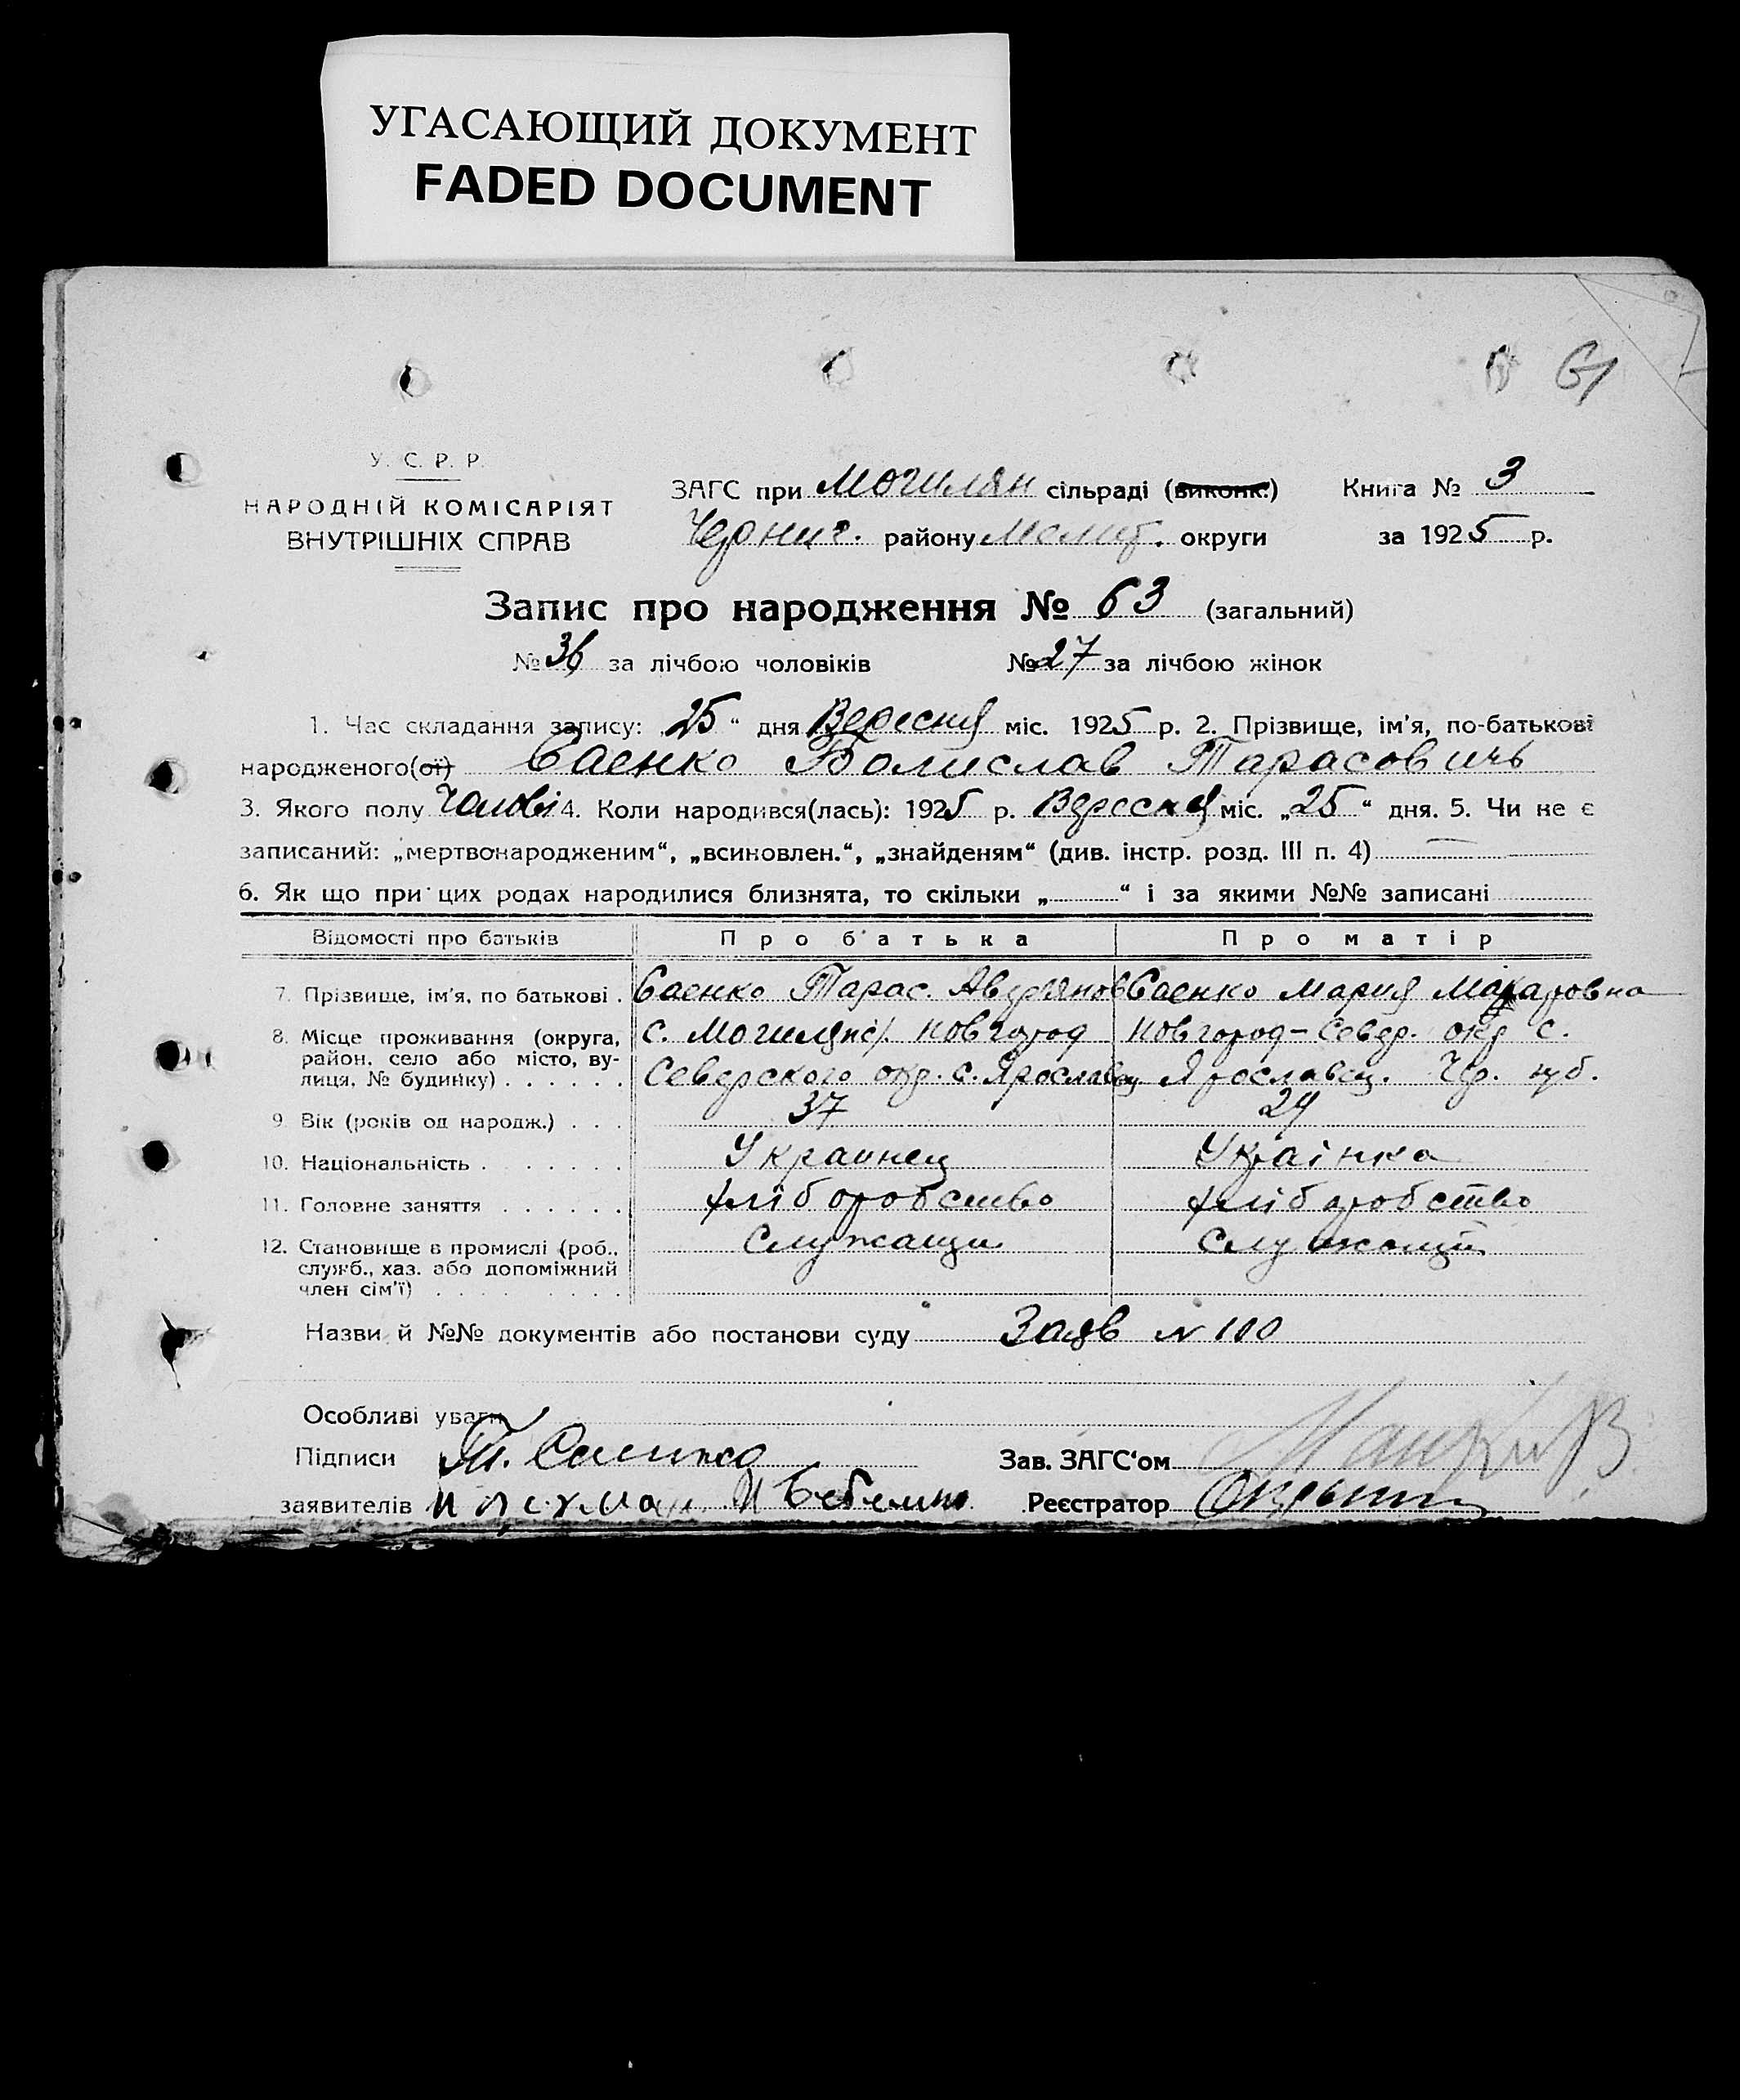 УГАСАЮЩИЙ ДОКУМЕНТ
FADED DOCUMENT
61
У. С. Р. Р.
НАРОДНІЙ КОМІСАРІЯТ
ВНУТРІШНІХ СПРАВ
ЗАГС при Могилян сільраді (виконк.) Книга № 3
Черниг. району Мелит. округи за 1925 р.
Запис про народження № 63 (загальний)
№ 36 за лічбою чоловіків № 27 за лічбою жінок
1. Час складання запису: „25“ дня Вересня міс. 1925 р. 2. Прізвище, ім'я, по-батькові
народженого(ої) Саенко Болислав Тарасовичь
3. Якого полу Чолові 4. Коли народився(лась): 1925 р. Вересня міс. „25“ дня. 5. Чи не є
записаний: „мертвонародженим“, „всиновлен.“, „знайденям“ (див. інстр. розд. III п. 4)
6. Як що при цих родах народилися близнята, то скільки „ “ і за якими №№ записані
Відомості про батьків Про батька Про матір
7. Прізвище, ім'я, по батькові . Саенко Тарас. Саенко Мария Макаровна
8. Місце проживання (округа, район, село або місто, вулиця, № будинку) . . . . . .
с. Новгород
Северского окр. с. Ярославец
Новгород-Север. окр с.
Ярославец. Чер. губ.
9 Вік (років од народж.) . . . 37 29
10. Національність . . . . . . Украинец Українка
11. Головне заняття . . . . . . хліборобство хліборобство
12. Становище в промислі (роб., служб., хаз. або допоміжний член сім'ї) . . . . . . Служащи Служащи
Назви й №№ документів або постанови суду Заяв N 100
Особливі уваги
Підписи Т. Саенко Зав. ЗАГС'ом
заявителів Реєстратор